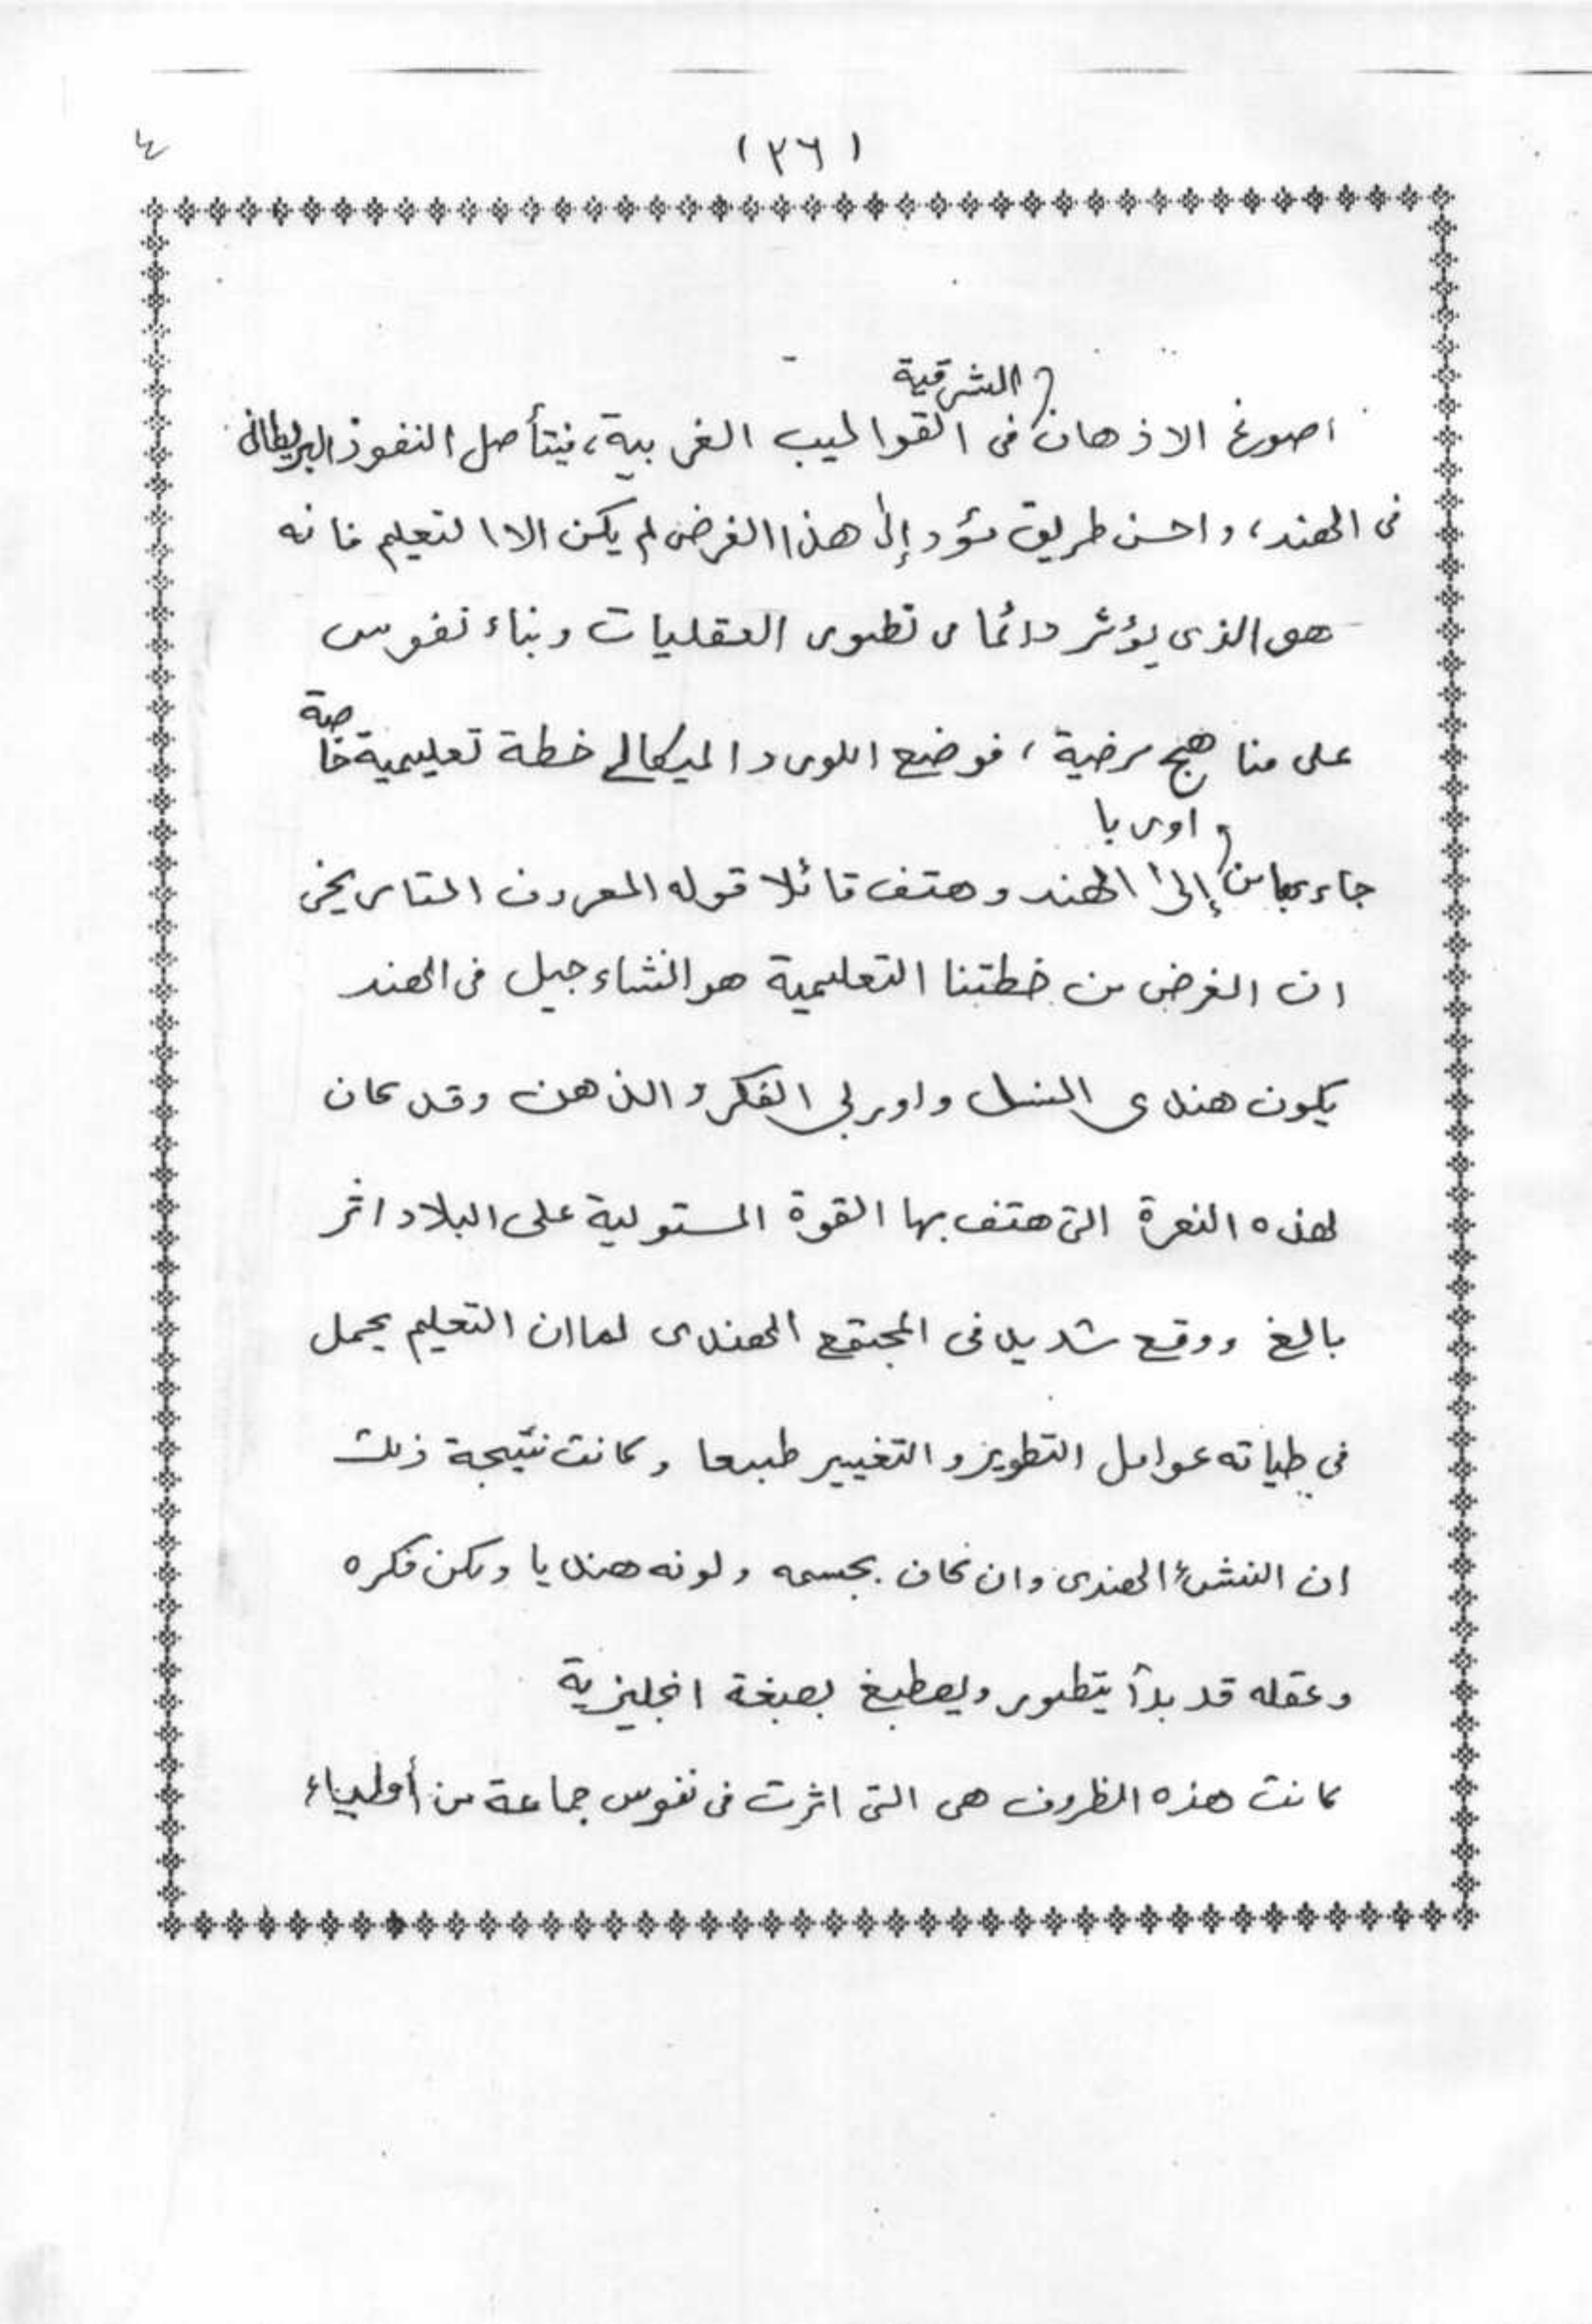 (٣٦)
اصوغ الاذهان الشرقية فى القواليب الغربية، فيتأصل النفوذ البريطانى
فى الهند، واحسن طريق مؤد إلى هذا الغرض لم يكن الا التعليم فانه
هو الذى يؤثر دائما فى تطور العقليات وبناء نفوس
على مناهج مرضية، فوضع اللورد الميكالے خطة تعليمية خاصة
جاء بها من اوربا إلى الهند وهتف قائلا قوله المعروف التاريخى
ان الغرض من خطتنا التعليمية هو انشاء جيل فى الهند
يكون هندى النسل واوربى الفكر والذهن وقد كان
لهذه النعرة التى هتف بها القوة المستولية على البلاد اثر
بالغ ووقع شديد فى المجتمع الهندى لما ان التعليم يحمل
فى طياته عوامل التطوير والتغيير طبعا وكانت نتيجة ذلك
ان النشئ الهندى وان كان بجسمه ولونه هنديا ولكن فكره
وعقله قد بدأ يتطور ويصطبغ بصبغة انجليزية
كانت هذه الظروف هى التى اثرت فى نفوس جماعة من أولياء